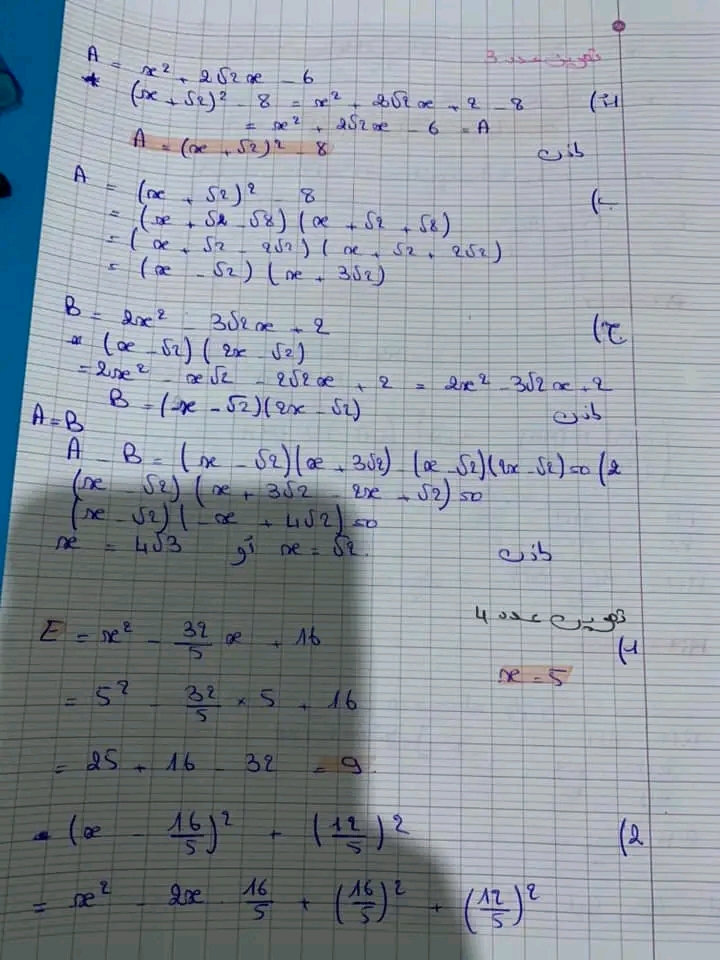 تمرين عدد 3
A = x² + 2√2x - 6
1-أ) * (x + √2)² - 8 = x² + 2√2x + 2 - 8
= x² + 2√2x - 6 = A
A = (x + √2)² - 8 إذن
ب) A = (x + √2)² - 8
= (x + √2 - √8) (x + √2 + √8)
= (x + √2 - 2√2) (x + √2 + 2√2)
= (x - √2) (x + 3√2)
ج) B = 2x² - 3√2x + 2
* (x - √2) (2x - √2)
= 2x² - x√2 - 2√2x + 2 = 2x² - 3√2x + 2
B = (x - √2)(2x - √2) إذن
A = B
2) A - B = (x - √2)(x + 3√2) - (x - √2)(2x - √2) = 0
(x - √2) (x + 3√2 - 2x + √2) = 0
(x - √2) (-x + 4√2) = 0
x = 4√3 أو x = √2. إذن
تمرين عدد 4
1) E = x² - 32/5 x + 16
x = 5
= 5² - 32/5 × 5 + 16
= 25 + 16 - 32 = 9.
2) - (x - 16/5)² + (12/5)²
= x² - 2x · 16/5 + (16/5)² + (12/5)²